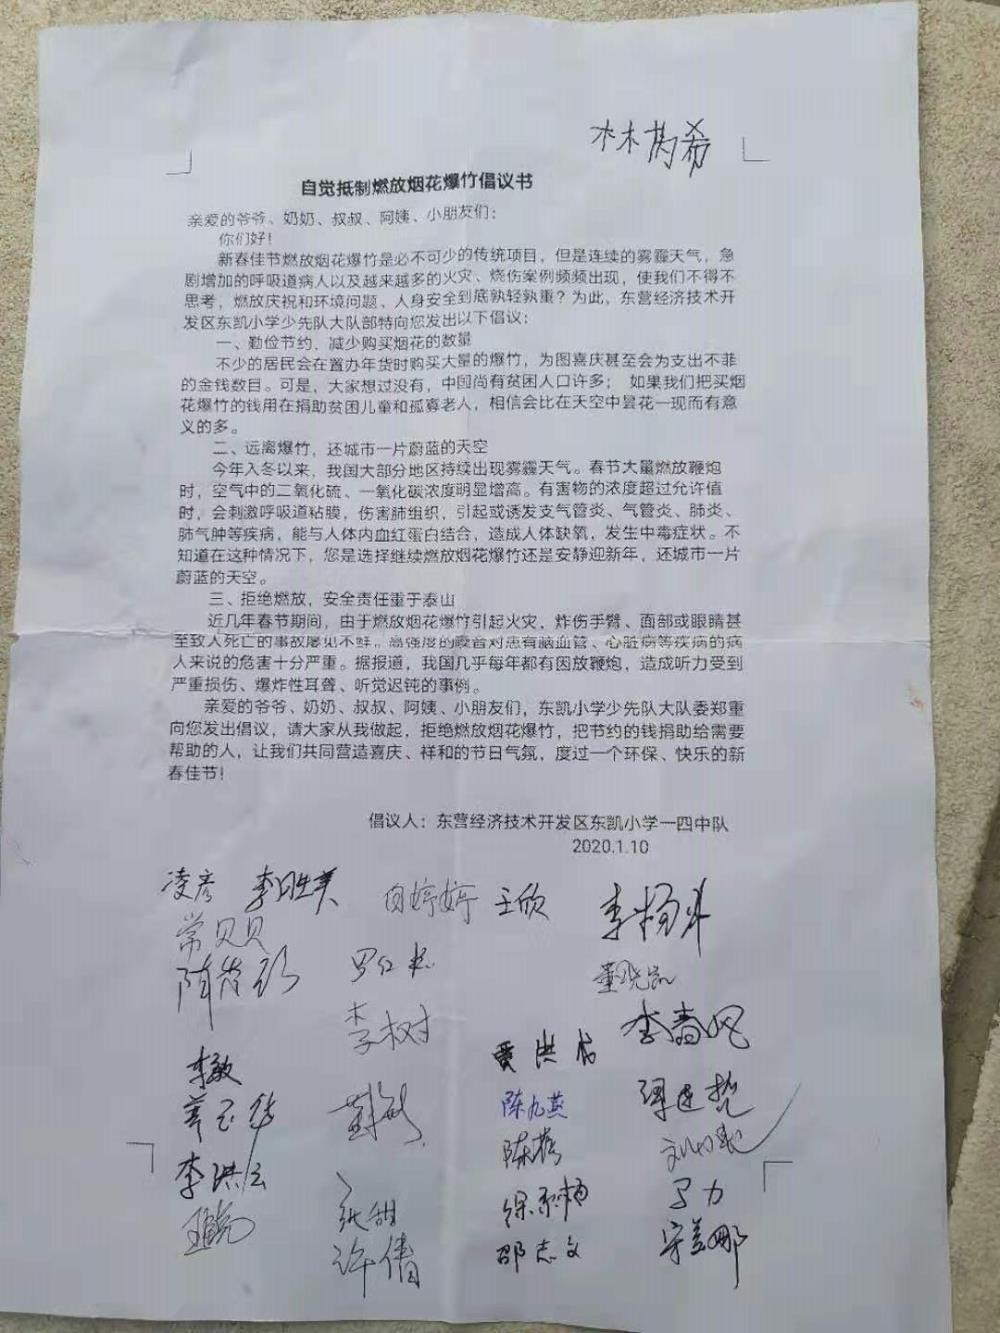 自觉抵制燃放烟花爆竹倡议书
亲爱的爷爷、奶奶、叔叔、阿姨、小朋友们：
你们好！
新春佳节燃放烟花爆竹是必不可少的传统项目，但是连续的雾霾天气，急
剧增加的呼吸道病人以及越来越多的火灾、烧伤案例频频出现，使我们不得不
思考，燃放庆祝和环境问题、人身安全到底孰轻孰重？为此，东营经济技术开
发区东凯小学少先队大队部特向您发出以下倡议：
一、勤俭节约，减少购买烟花的数量
不少的居民会在置办年货时购买大量的爆竹，为图喜庆甚至会为支出不菲
的金钱数目。可是，大家想过没有，中国尚有贫困人口许多； 如果我们把买烟
花爆竹的钱用在捐助贫困儿童和孤寡老人，相信会比在天空中昙花一现而有意
义的多。
二、远离爆竹，还城市一片蔚蓝的天空
今年入冬以来，我国大部分地区持续出现雾霾天气。春节大量燃放鞭炮
时，空气中的二氧化硫、一氧化碳浓度明显增高。有害物的浓度超过允许值
时，会刺激呼吸道粘膜，伤害肺组织，引起或诱发支气管炎、气管炎、肺炎、
肺气肿等疾病，能与人体内血红蛋白结合，造成人体缺氧，发生中毒症状。不
知道在这种情况下，您是选择继续燃放烟花爆竹还是安静迎新年，还城市一片
蔚蓝的天空。
三、拒绝燃放，安全责任重于泰山
近几年春节期间，由于燃放烟花爆竹引起火灾，炸伤手臂、面部或眼睛甚
至致人死亡的事故屡见不鲜。高强度的噪音对患有脑血管、心脏病等疾病的病
人来说的危害十分严重。据报道，我国几乎每年都有因放鞭炮，造成听力受到
严重损伤、爆炸性耳聋、听觉迟钝的事例。
亲爱的爷爷、奶奶、叔叔、阿姨、小朋友们，东凯小学少先队大队委郑重
向您发出倡议，请大家从我做起，拒绝燃放烟花爆竹，把节约的钱捐助给需要
帮助的人，让我们共同营造喜庆、祥和的节日气氛，度过一个环保、快乐的新
春佳节！
倡议人：东营经济技术开发区东凯小学一四中队
2020.1.10
凌彦 李胜美 白婷婷 王欣
常贝贝
李树
李春风
李敏
陈九燕
李洪云
张甜
邵志文
许倩